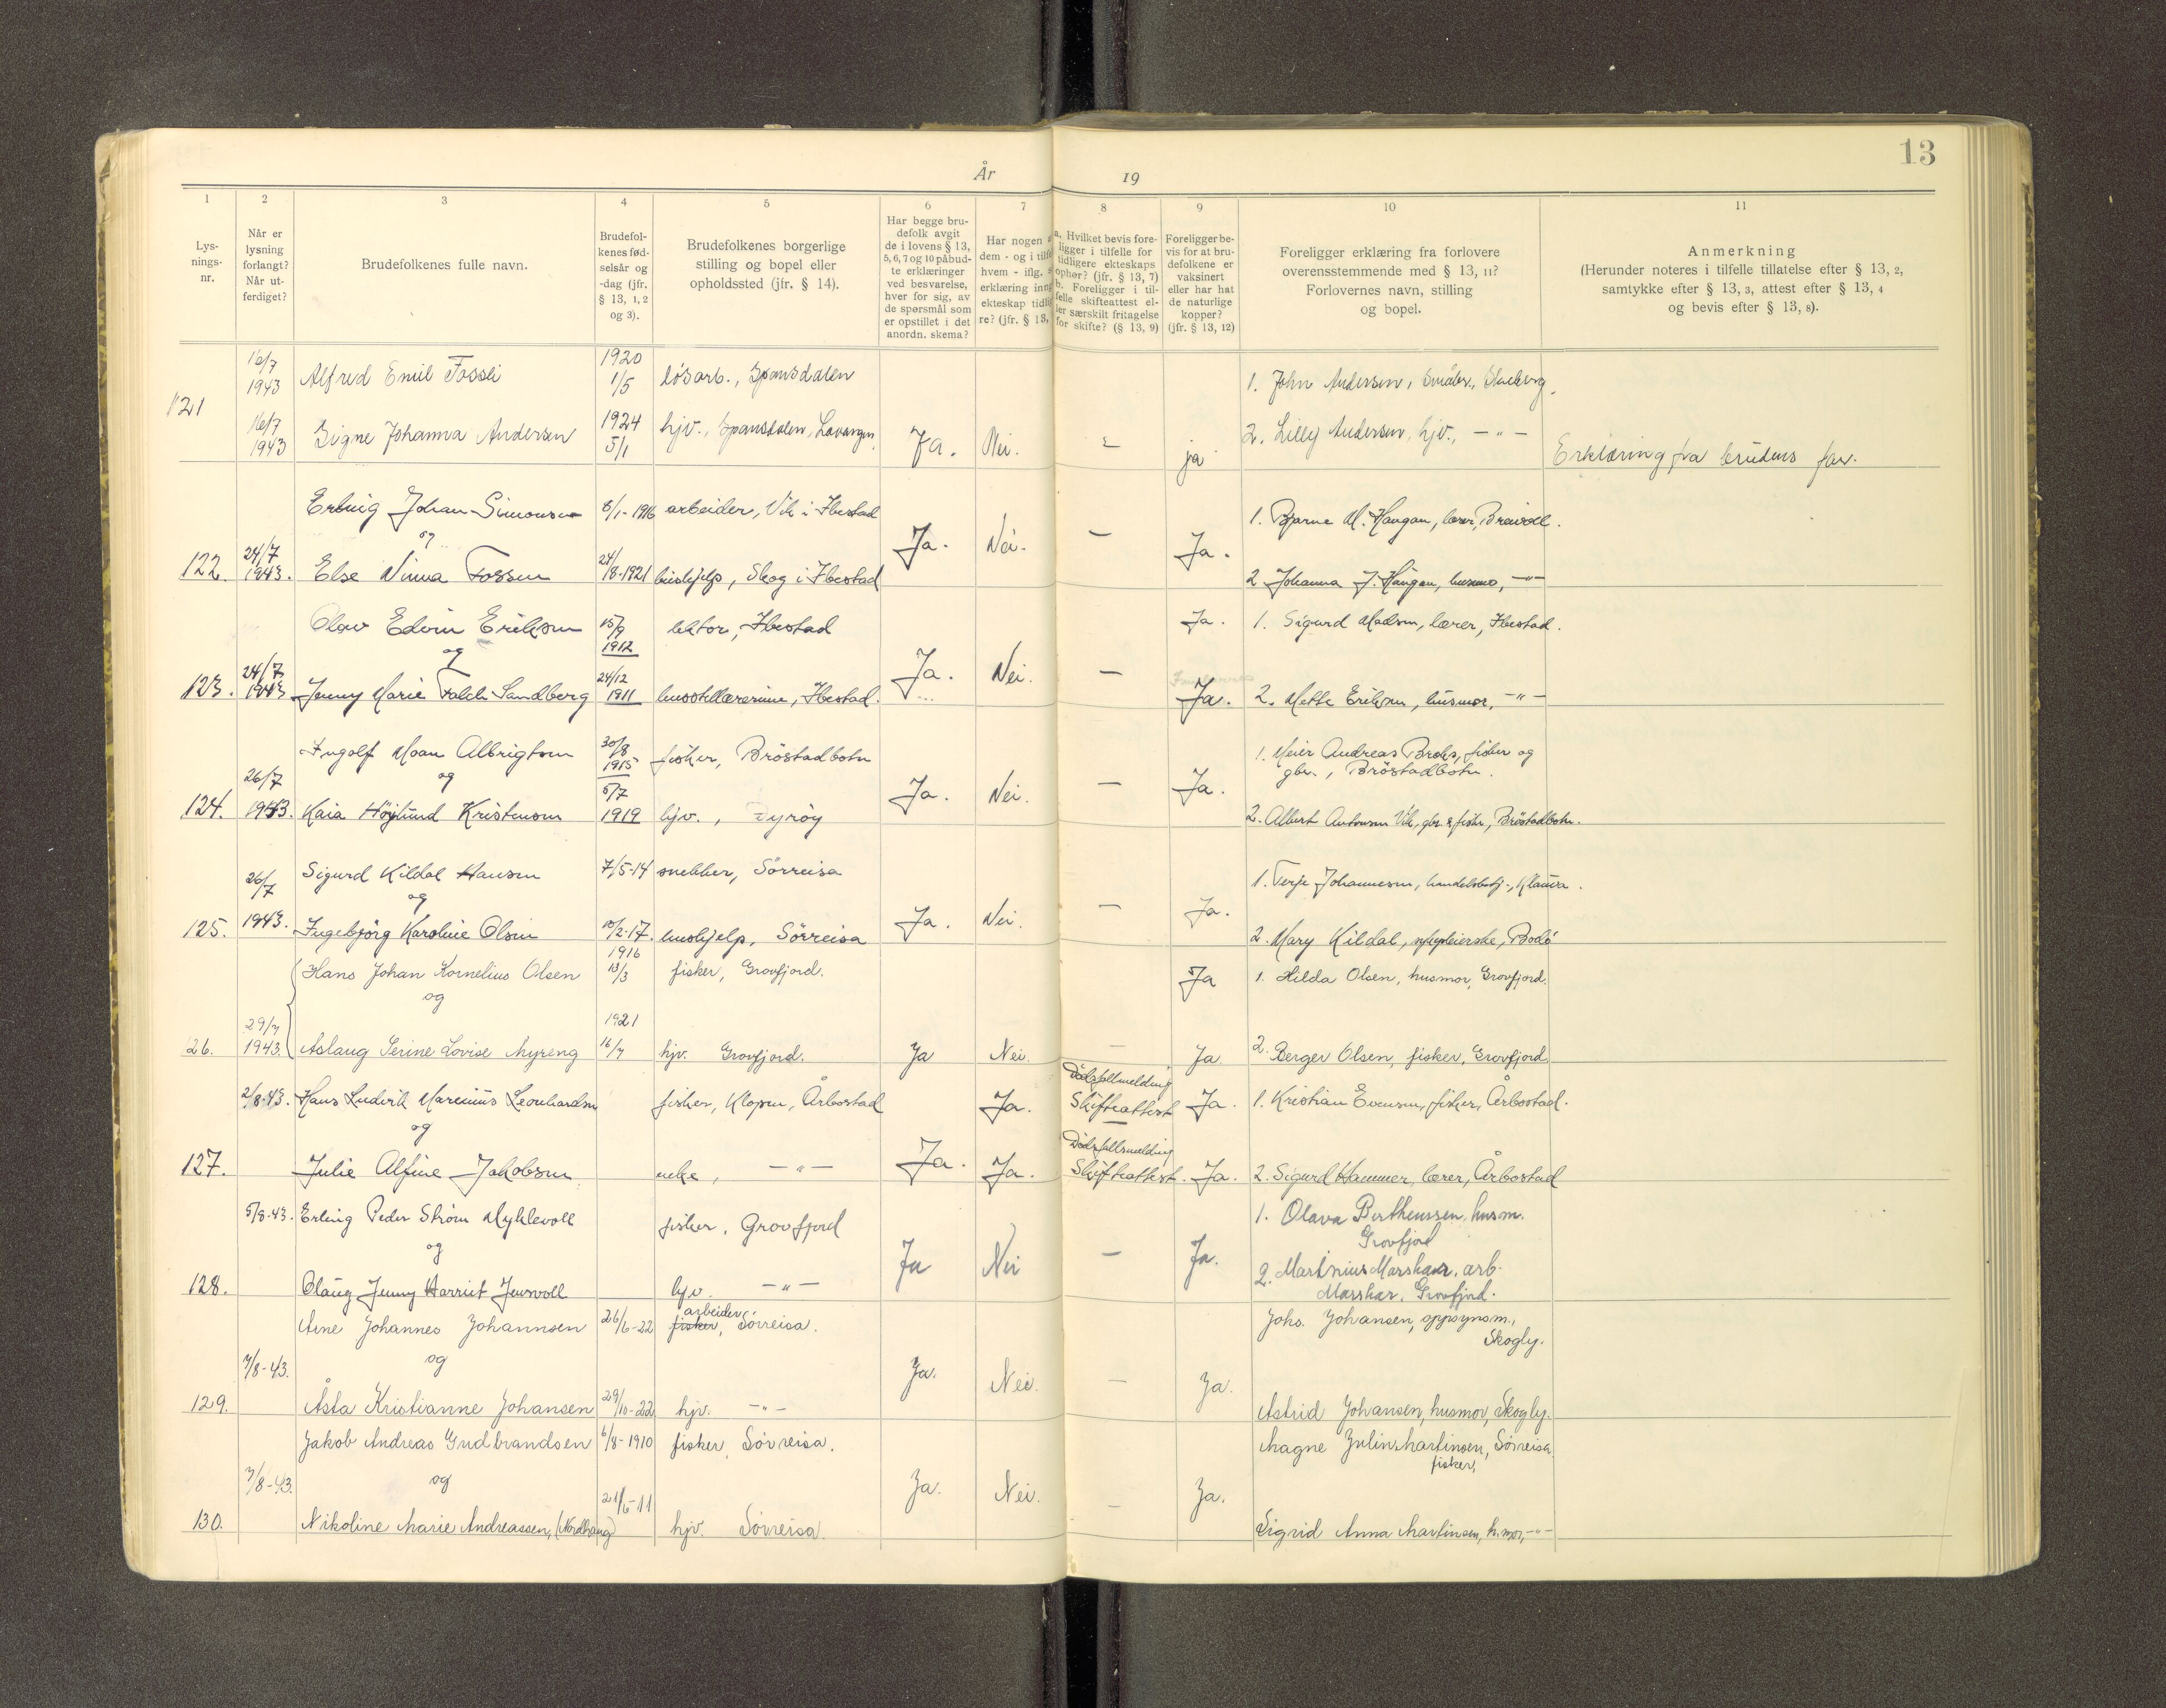 13
År 19
1 2 3 4 5 6 7 8 9 10 11
Lys-
nings-
nr.
Når er
lysning
forlangt?
Når ut-
ferdiget?
Brudefolkenes fulle navn.
Brudefol-
kenes fød-
selsår og
-dag (jfr.
§ 13, 1, 2
og 3).
Brudefolkenes borgerlige
stilling og bopel eller
opholdssted (jfr. § 14).
Har begge bru-
defolk avgit
de i lovens § 13,
5, 6, 7 og 10 påbud-
te erklæringer
ved besvarelse,
hver for sig, av
de spørsmål som
er opstillet i det
anordn. skema?
Har nogen
dem - og i tilf
hvem - iflg.
erklæring inng
ekteskap tidli
re? (jfr. § 13,
a. Hvilket bevis fore-
ligger i tilfelle for
tidligere ekteskaps
ophør? (jfr. § 13, 7)
b. Foreligger i til-
felle skifteattest el-
ler særskilt fritagelse
for skifte? (§ 13, 9)
Foreligger be-
vis for at bru-
defolkene er
vaksinert
eller har hat
de naturlige
kopper?
(jfr. § 13, 12)
Foreligger erklæring fra forlovere
overensstemmende med § 13, 11?
Forlovernes navn, stilling
og bopel.
Anmerkning
(Herunder noteres i tilfelle tillatelse efter § 13, 2,
samtykke efter § 13, 3, attest efter § 13, 4
og bevis efter § 13, 8).
16/7 1943 Alfred Emil Fossli 1920 1/5 løsarb., Spansdalen 1. John Andersen, småbr.,
121 16/7 1943 Signe Johanna Andersen 1924 5/1 hjv., Spansdalen, Lavangen. Ja. Nei. - ja 2. Lilly Andersen, hjv., -"- Erklæring fra brudens far.
Erling Johan Simonsen 8/1-1916 arbeider, Vik i Ibestad 1. Bjarne M. Haugan, lærer, Breivoll.
og
122. 24/7 1943. Else Ninna Fossen 24/8-1921 hushjelp, Skog i Ibestad Ja. Nei. - Ja. 2 Johanna J. Haugan, husmo, -"-
Olav Edvin Eriksen 15/9 1912 lektor, Ibestad Ja. 1. Sigurd Madsen, lærer, Ibestad.
og
123. 24/7 1943 Jenny Marie Falch Sandberg 24/12 1911 husstellærerinne, Ibestad. Ja. Nei. - Ja. 2. Mette Eriksen, husmor, -"-
Ingolf Moan Albrigtsen 30/8 1915 fisker, Bröstadbotn 1. Meier Andreas Broks, fisker og
og gbr., Bröstadbotn.
124. 26/7 1943. Kaia Höylund Kristensen 5/7 1919 hjv., Dyröy Ja. Nei. - Ja. 2. Albert Antonsen Vik, gbr. & fisker, Bröstadbotn.
Sigurd Kildal Hansen 7/5-14 snekker, Sörreisa 1. Terje Johannesen, handelsbetj., Klauva.
og
125. 26/7 1943. Ingebjörg Karoline Olsen 10/2-17. hushjelp, Sörreisa Ja. Nei. - Ja. 2. Mary Kildal, sykepleierske, Bodö
Hans Johan Kornelius Olsen 1916 13/3 fisker, Grovfjord. Ja 1. Hilda Olsen, husmor, Grovfjord.
og
26. 29/7 1943. Aslaug Serine Lovise Myreng 1921 16/7 hjv. Grovfjord. Ja Nei. - Ja. 2. Berger Olsen, fisker, Grovfjord
2/8-43. Hans Ludvik Marenius Leonhardsen fisker, Klopen, Årbostad Ja. Dödsfallmelding Skifteattest Ja. 1. Kristian Evensen, fisker, Årbostad.
og
127. Julie Alfine Jakobsen enke, -"- Ja. Ja. Dödsfallsmelding Skifteattest. Ja. 2. Sigurd Hammer, lærer, Årbostad
5/8-43. Erling Peder Strøm Myklevoll fisker, Grovfjord 1. Olava Bertheussen, husm.
og Grovfjord
128. Olaug Jenny Harriet Jensvoll hjv. -"- Ja Nei - Ja. 2. Martinius Marskar, arb.
Marskar, Grovfjord.
Arne Johannes Johannsen 26/6-22 fisker, arbeider, Sörreisa. Johs. Johansen, oppsynsm.,
og Skogly.
129. 7/8-43. Åsta Kristianne Johansen 29/10-22 hjv. -"- Ja. Nei. - Ja. Astrid Johansen, husmor, Skogly.
Jakob Andreas Gudbrandsen 6/8-1910 fisker, Sörreisa. Magne Julin Martinsen, Sörreisa
og fisker,
130. 7/8-43. Nikoline Marie Andreassen, (Nordhaug) 21/6-11 hjv. Sörreisa. Ja. Nei. - Ja. Sigrid Anna Martinsen, h.mor, -"-